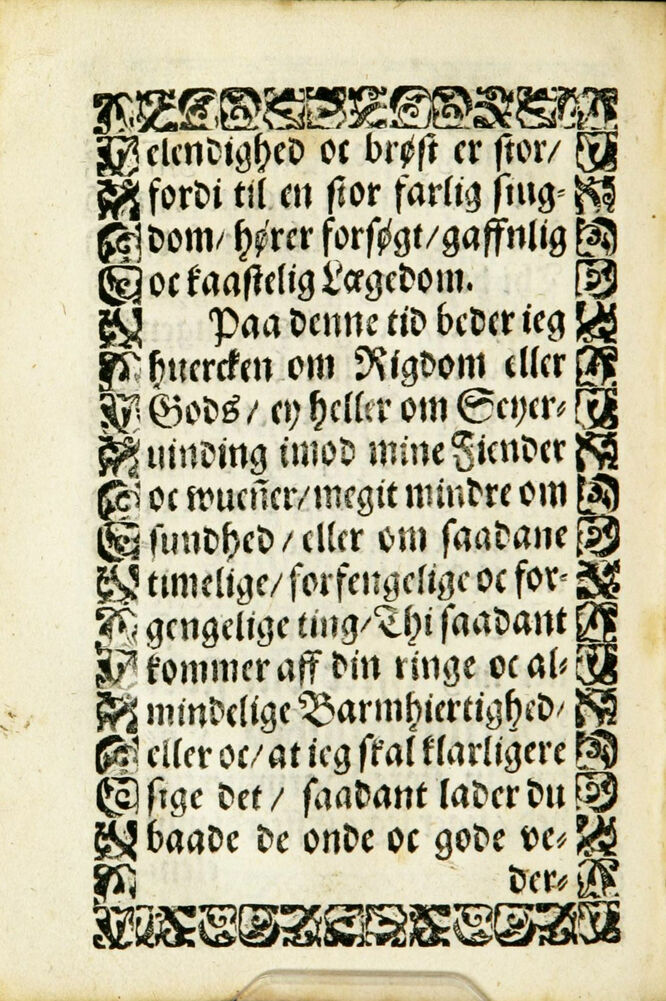 elendighed oc brøst er stor/
fordi til en stor farlig siug-
dom/ hører forsøgt/gaffnlig
oc kaastelig Lægedom.
Paa denne tid beder ieg
huercken om Rigdom eller
Gods/ ey heller om Seyer-
uinding imod mine Fiender
oc wuen̄er/megit mindre om
sundhed/ eller om saadane
timelige/ forfengelige oc for-
gengelige ting/Thi saadant
kommer aff din ringe oc al-
mindelige Barmhiertighed/
eller oc/ at ieg skal klarligere
sige det/ saadant lader du
baade de onde oc gode ve-
der-